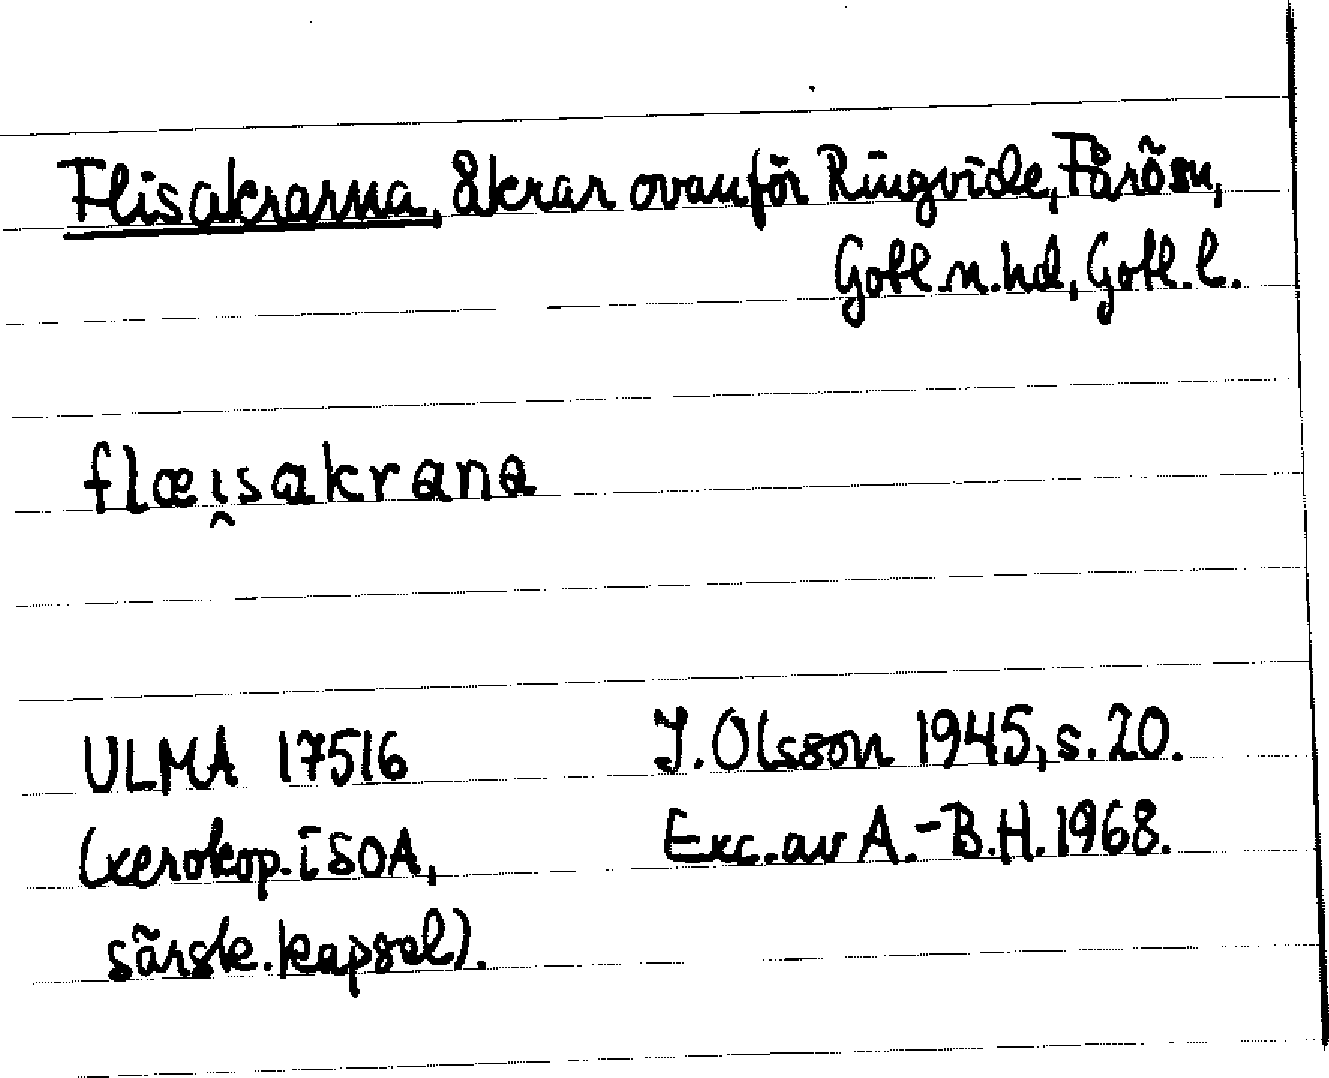 Flisakrarna, åkrar ovanför Ringvide, Fårö sn,
Gotl. n. hd, Gotl. l.
flæi̯sakrana
ULMA 17516
J. Olsson 1945, s. 20.
(xerokop. i SOA,
Exc. av A.-B.H. 1968.
särsk. kapsel).